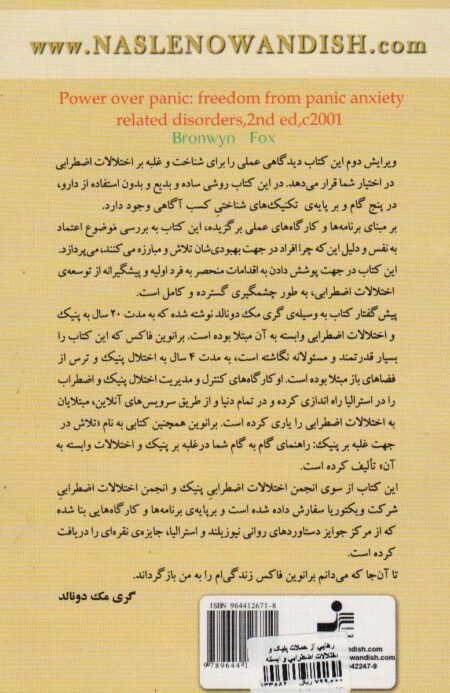 www.NASLENOWANDISH.com
Power over panic: freedom from panic anxiety
related disorders,2nd ed,c2001
Bronwyn Fox
ویرایش دوم این کتاب دیدگاهی عملی را برای شناخت و غلبه بر اختلالات اضطرابی
در اختیار شما قرار می‌دهد. در این کتاب روشی ساده و بدیع و بدون استفاده از دارو،
در پنج گام و بر پایه‌ی تکنیک‌های شناختیِ کسب آگاهی وجود دارد.
بر مبنای برنامه‌ها و کارگاه‌های عملی برگزیده، این کتاب به بررسی موضوع اعتماد
به نفس و دلیل این که چرا افراد در جهت بهبودی‌شان تلاش و مبارزه می‌کنند، می‌پردازد.
این کتاب در جهت پوشش دادن به اقدامات منحصر به فرد اولیه و پیشگیرانه از توسعه‌ی
اختلالات اضطرابی، به طور چشمگیری گسترده و کامل است.
پیش‌گفتار کتاب به وسیله‌ی گری مک دونالد نوشته شده که به مدت ۲۰ سال به پنیک
و اختلالات اضطرابی وابسته به آن مبتلا بوده است. برانوین فاکس که این کتاب را
بسیار قدرتمند و مسئولانه نگاشته است، به مدت ۴ سال به اختلال پنیک و ترس از
فضاهای باز مبتلا بوده است. او کارگاه‌های کنترل و مدیریت اختلال پنیک و اضطراب
را در استرالیا راه اندازی کرده و در تمام دنیا و از طریق سرویس‌های آنلاین، مبتلایان
به اختلالات اضطرابی را یاری کرده است. برانوین همچنین کتابی به نام «تلاش در
جهت غلبه بر پنیک: راهنمای گام به گام شما درغلبه بر پنیک و اختلالات وابسته به
آن» تألیف کرده است.
این کتاب از سوی انجمن اختلالات اضطرابیِ پنیک و انجمن اختلالات اضطرابیِ
شرکت ویکتوریا سفارش داده شده است و برپایه‌ی برنامه‌ها و کارگاه‌هایی بنا شده
که از مرکز جوایز دستاوردهای روانی نیوزیلند و استرالیا، جایزه‌ی نقره‌ای را دریافت
کرده است.
تا آن‌جا که می‌دانم برانوین فاکس زندگی‌ام را به من بازگرداند.
گری مک دونالد
ISBN 964412671-8
9789644
رهایی از حملات پنیک و
اختلالات اضطرابی وابسته
ریال
wandish.com
owandish.com
942247-9